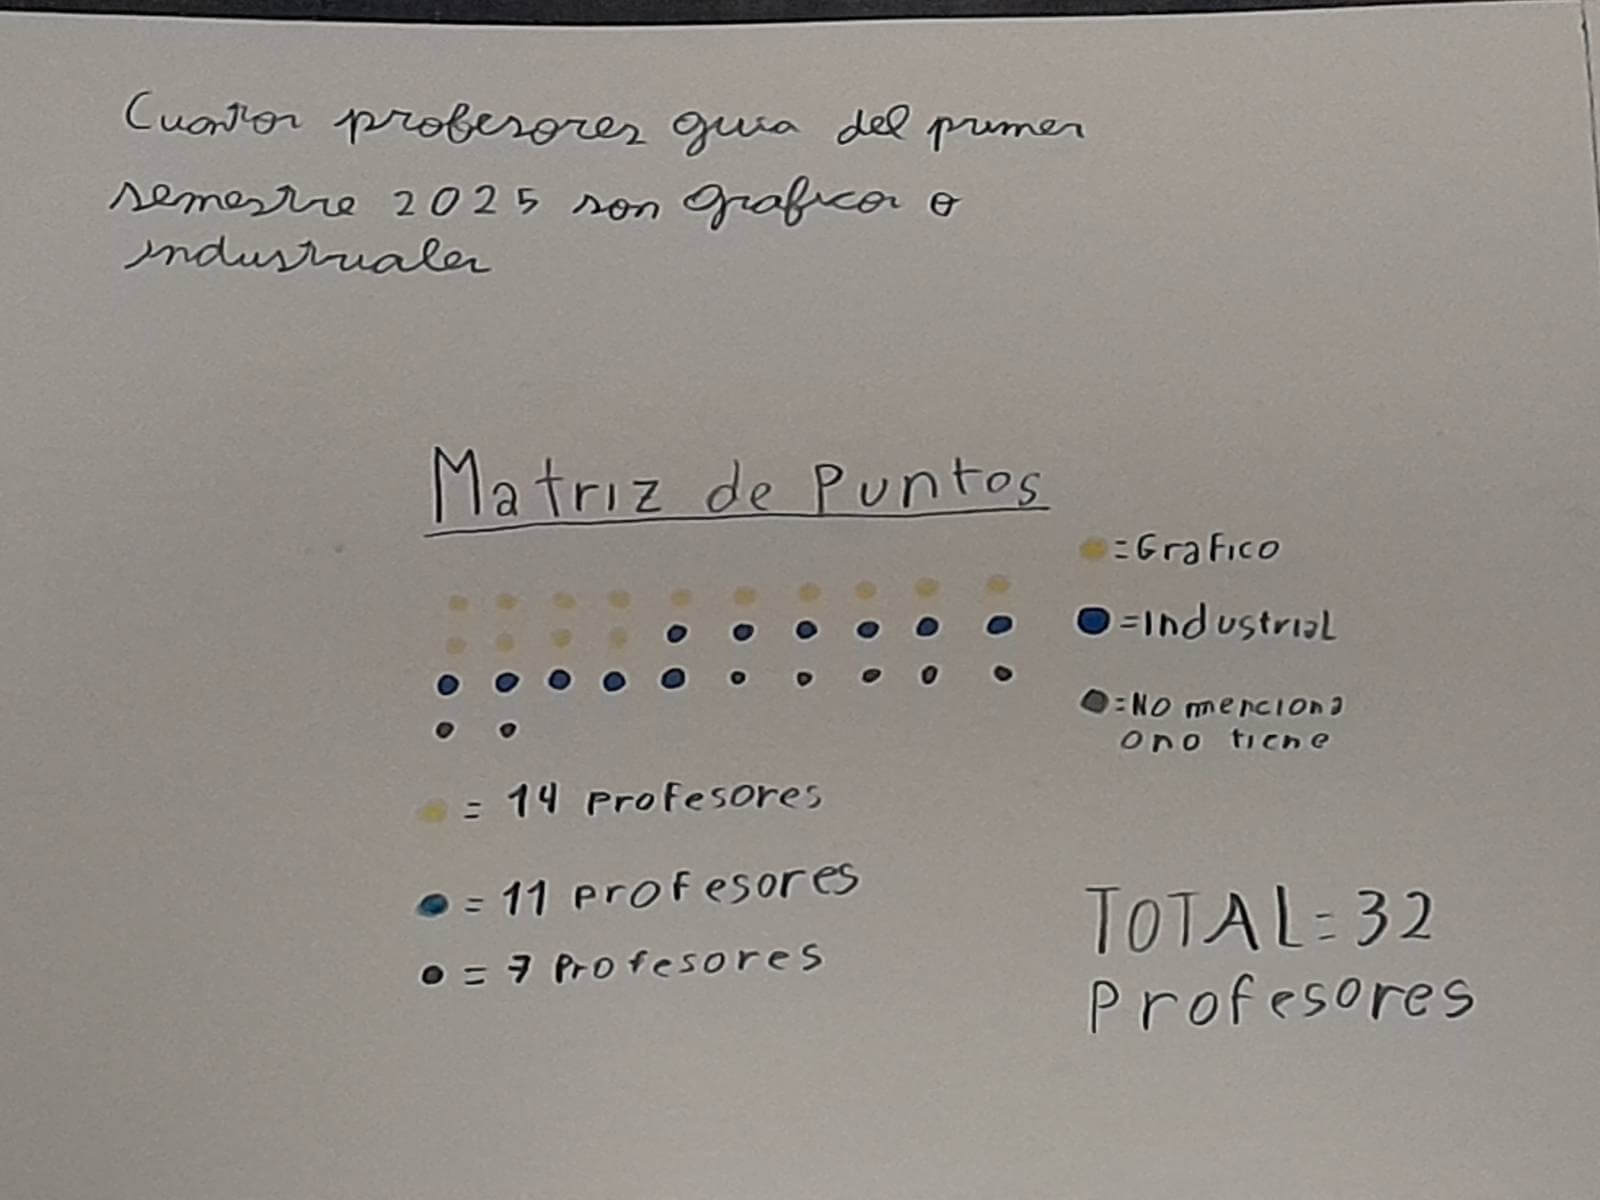 Cuantos profesores guia del primer
semestre 2025 son graficos o
industriales
Matriz de Puntos
= Grafico
= Industrial
= No menciona
o no tiene
= 14 Profesores
= 11 Profesores
= 7 Profesores
TOTAL = 32
Profesores